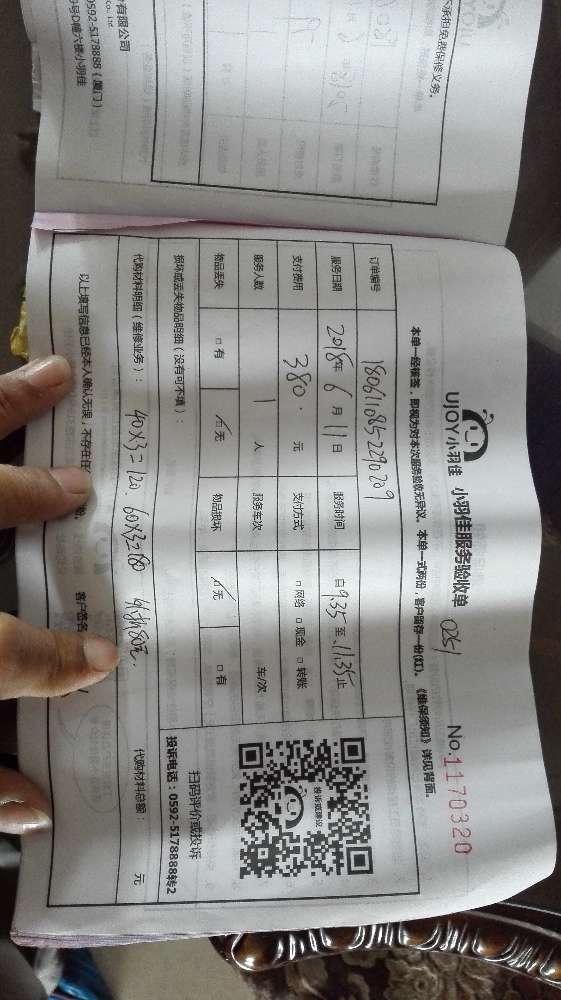 不承担免费保修义务。
有限公司
Co., Ltd
0592-5178888（厦门）
号D幢六楼小羽佳
UJOY小羽佳 小羽佳服务验收单 0251 No.1170320
本单一经核签，即视为对本次服务验收无异议。本单一式两份，客户留存一份(红)。《维保须知》详见背面。
订单编号 1806110852290209
服务日期 2018年6月11日 服务时间 自9.35至11.35止
支付费用 380.元 支付方式 □网络 □现金 □转账
服务人数 1人 服务车次 车/次
物品丢失 □有 ☑无 物品损坏 ☑无 □有
损坏或丢失物品明细（没有可不填）：
代购材料明细（维修业务）：40×3=120. 60×3=180 代购材料总额： 元
以上填写信息已经本人确认无误，不存在任 客户签名
投诉或建议
扫码评价或投诉
投诉电话：0592-5178888转2